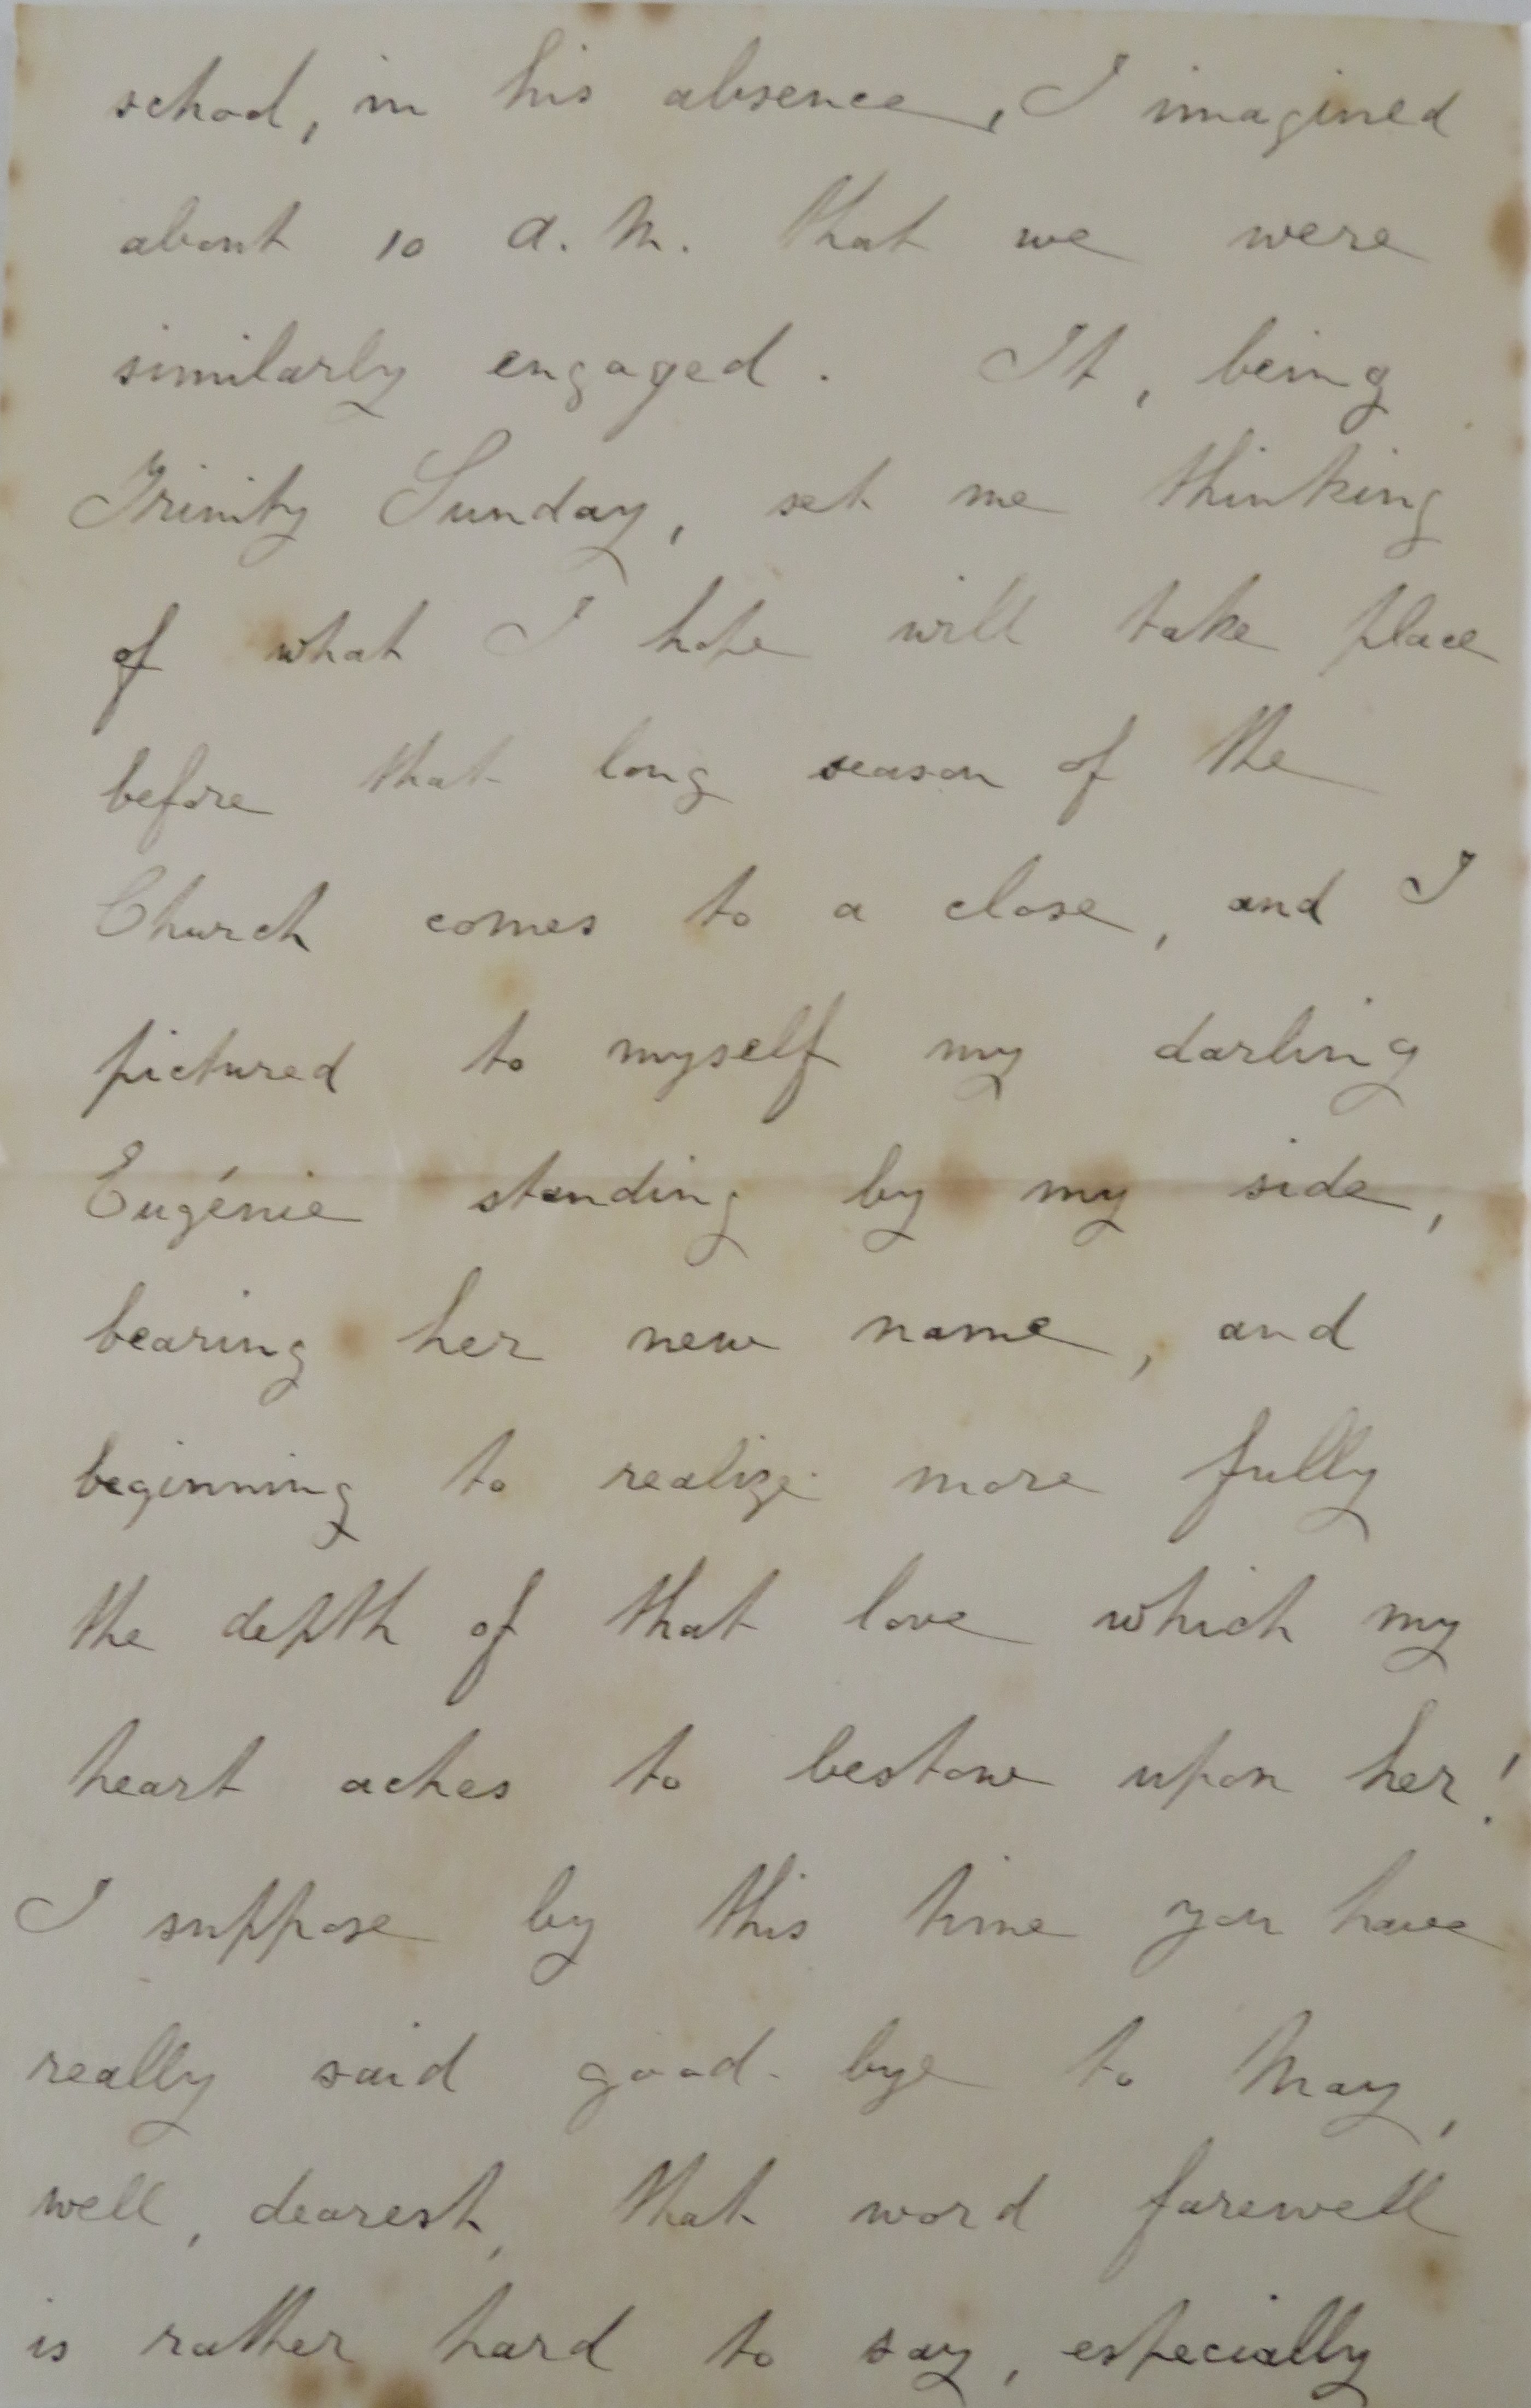 school, in his absence, I imagined
about 10 a.m. that we were
similarly engaged. It, being
Trinity Sunday, set me thinking
of what I hope will take place
before that long season of the
Church comes to a close, and I
pictured to myself my darling
Eugénie standing by my side,
bearing her new name, and
beginning to realize more fully
the depth of that love which my
heart aches to bestow upon her!
I suppose by this time you have
really said good-bye to May,
well, dearest, that word farewell
is rather hard to say, especially